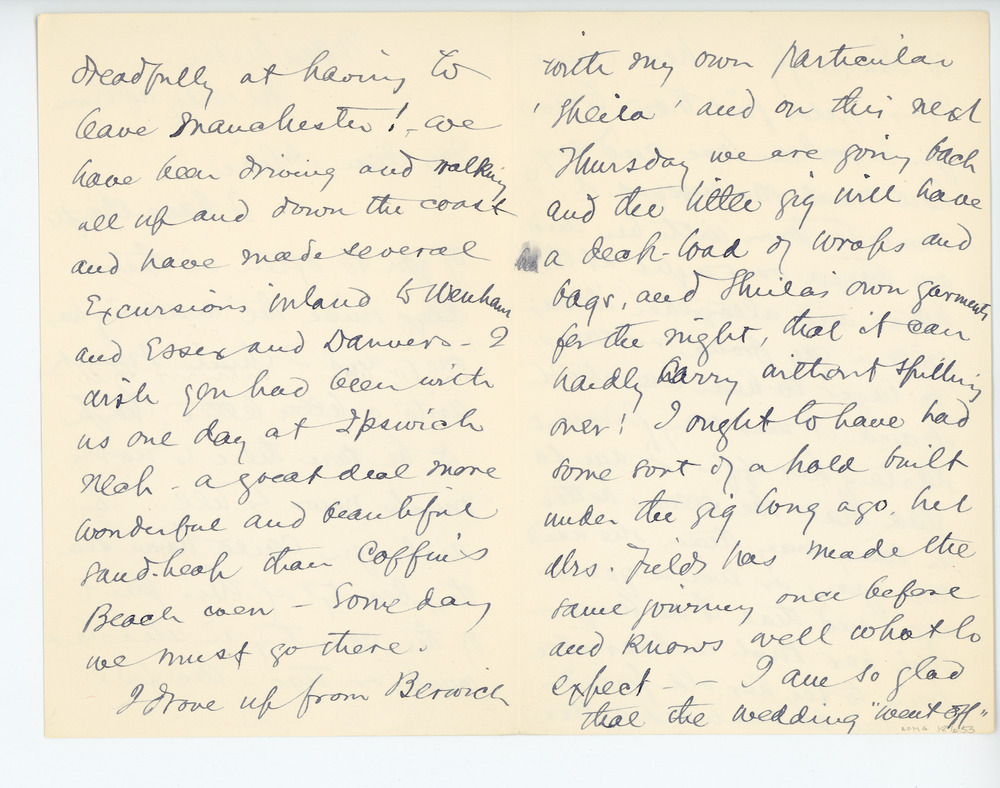 dreadfully at having to
leave Manchester! - we
have been driving and walking
all up and down the coast
and have made several
Excursions inland to Wenham
and Essex and Danvers - I
wish you had been with
us one day at Ipswich
Neck - a great deal more
wonderful and beautiful
sand-heap than Coffin's
Beach even - Some day
we must go there.
I drove up from Berwick
with my own particular
'Sheila' and on this next
Thursday we are going back
and the little gig will have
a deck-load of wraps and
bags, and Sheila's own garments
for the night, that it can
hardly carry without spilling
over! I ought to have had
some sort of a hold built
under the gig long ago. but
Mrs. Fields has made the
same journey once before
and knows well what to
expect - - I am so glad
that the wedding "went off"